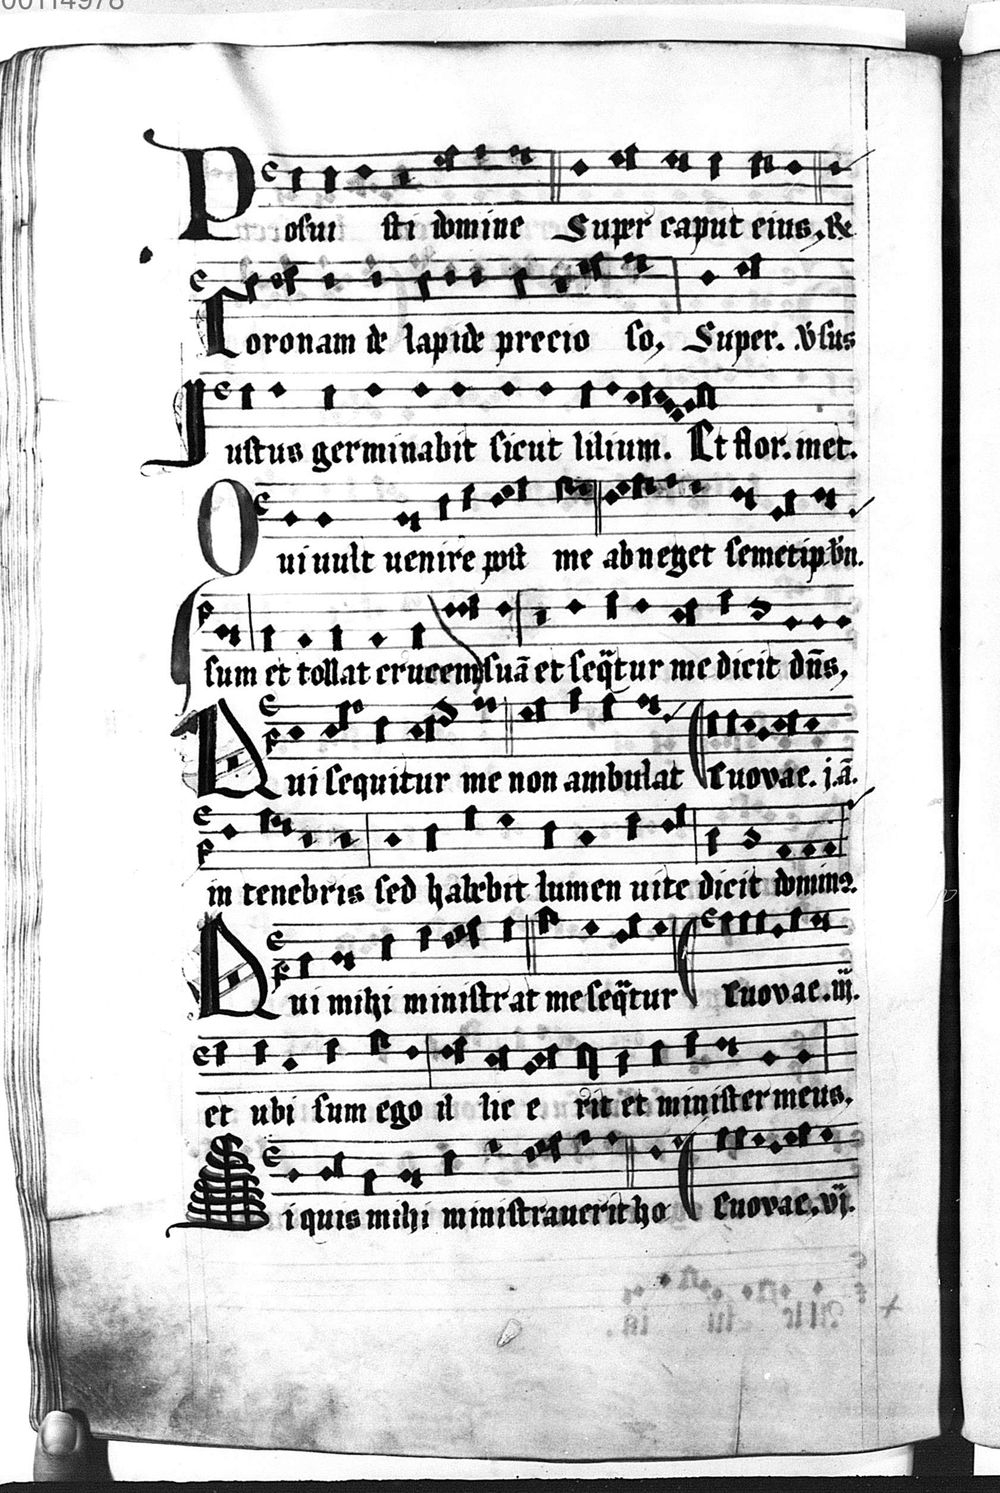 00114978
Posui sti domine Super caput eius, &
Coronam de lapide precio so, Super. v̄sus
Justus germinabit sicut lilium. Et flor. in et.
Qui uult uenire post me abneget semetip
sum et tollat crucem suā et seq̄tur me dicit dn̄s,
Qui sequitur me non ambulat Euovae. j. ā.
in tenebris sed habebit lumen uite dicit domin9.
Qui mihi ministrat me seq̄tur Euovae. iij.
et ubi sum ego il lic e rit et minister meus,
Si quis mihi ministrauerit ho Euovae. vj.